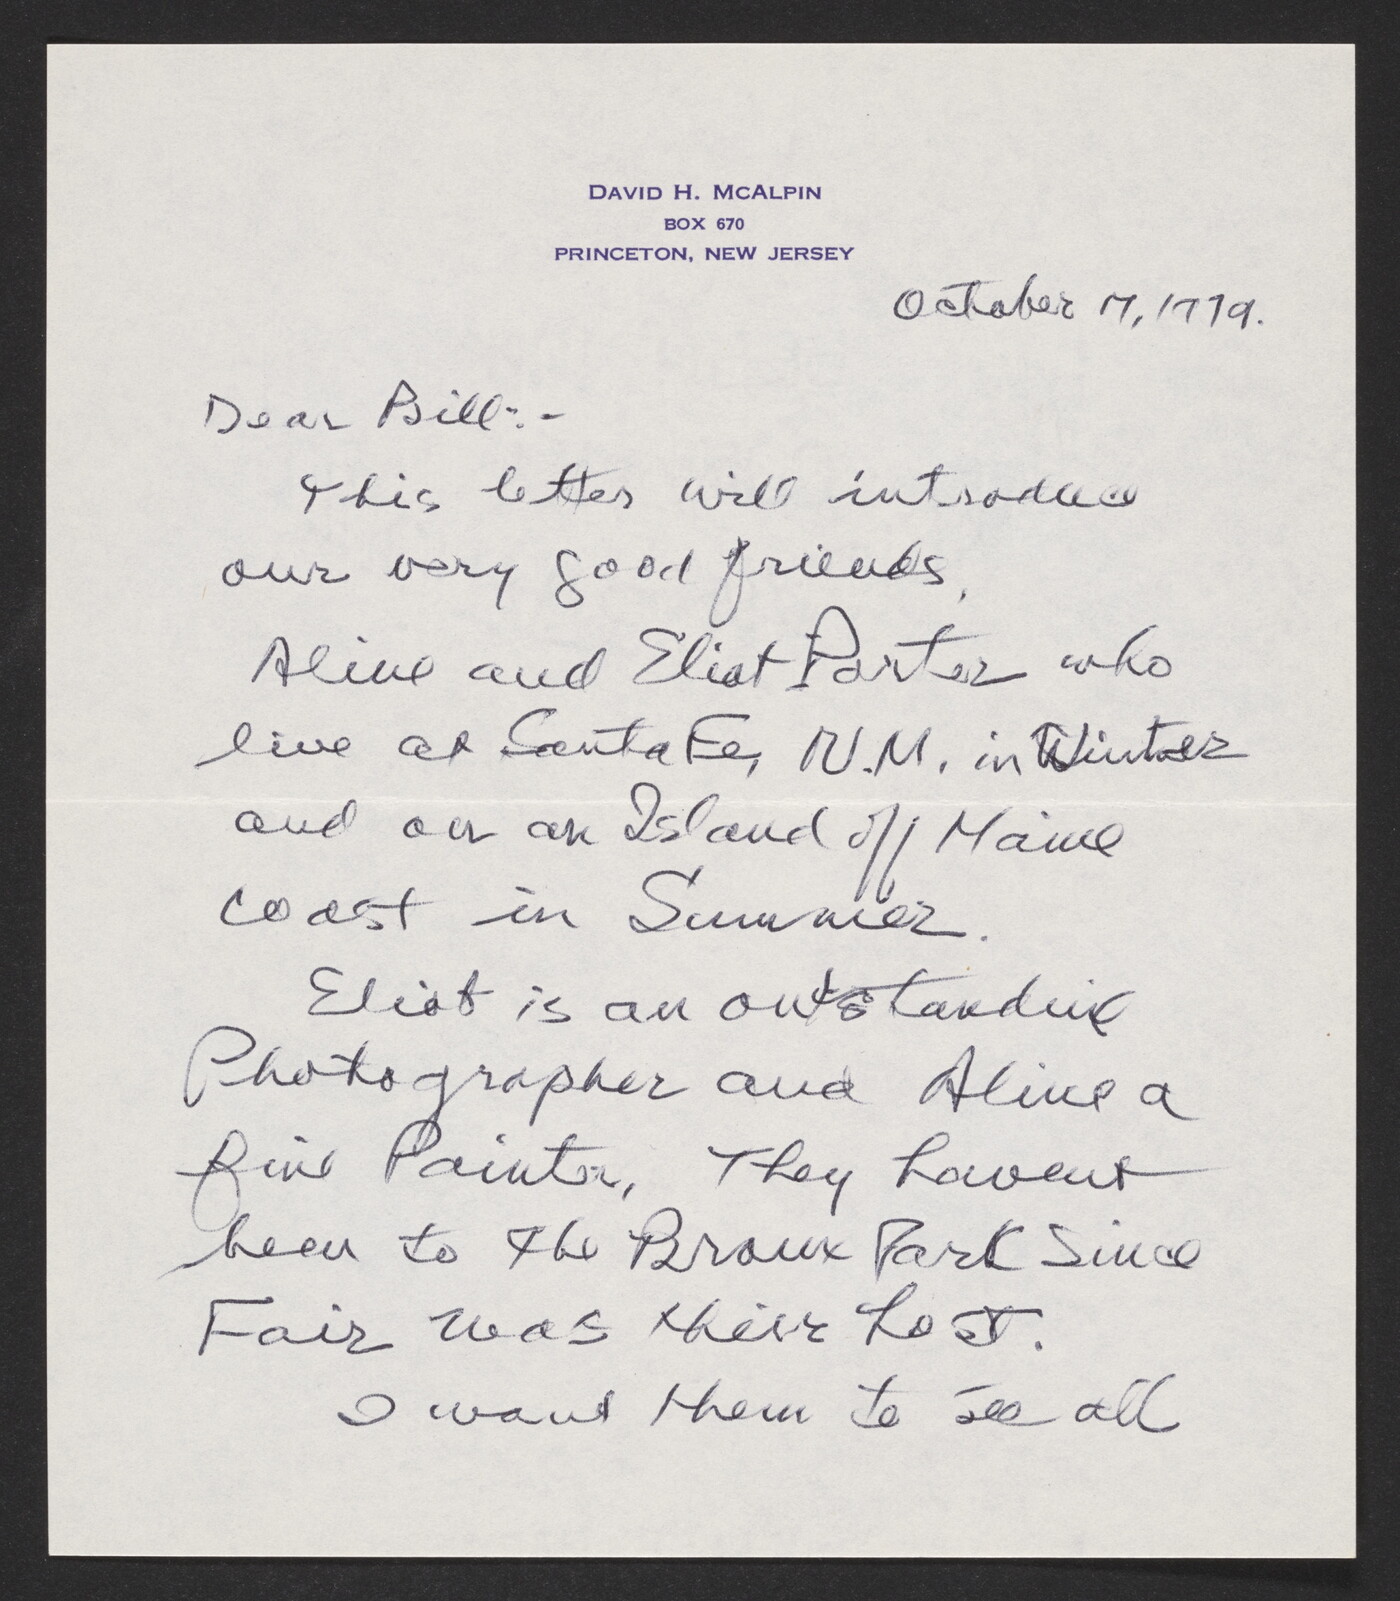 DAVID H. MCALPIN
BOX 670
PRINCETON, NEW JERSEY
October 17, 1979.
Dear Bill:-
This letter will introduce
our very good friends,
Aline and Eliot Porter who
live at Santa Fe, N.M. in Winter
and on an Island off Maine
coast in Summer.
Eliot is an outstanding
Photographer and Aline a
fine Painter, They havent
been to the Bronx Park since
Fair was their host.
I want them to see all